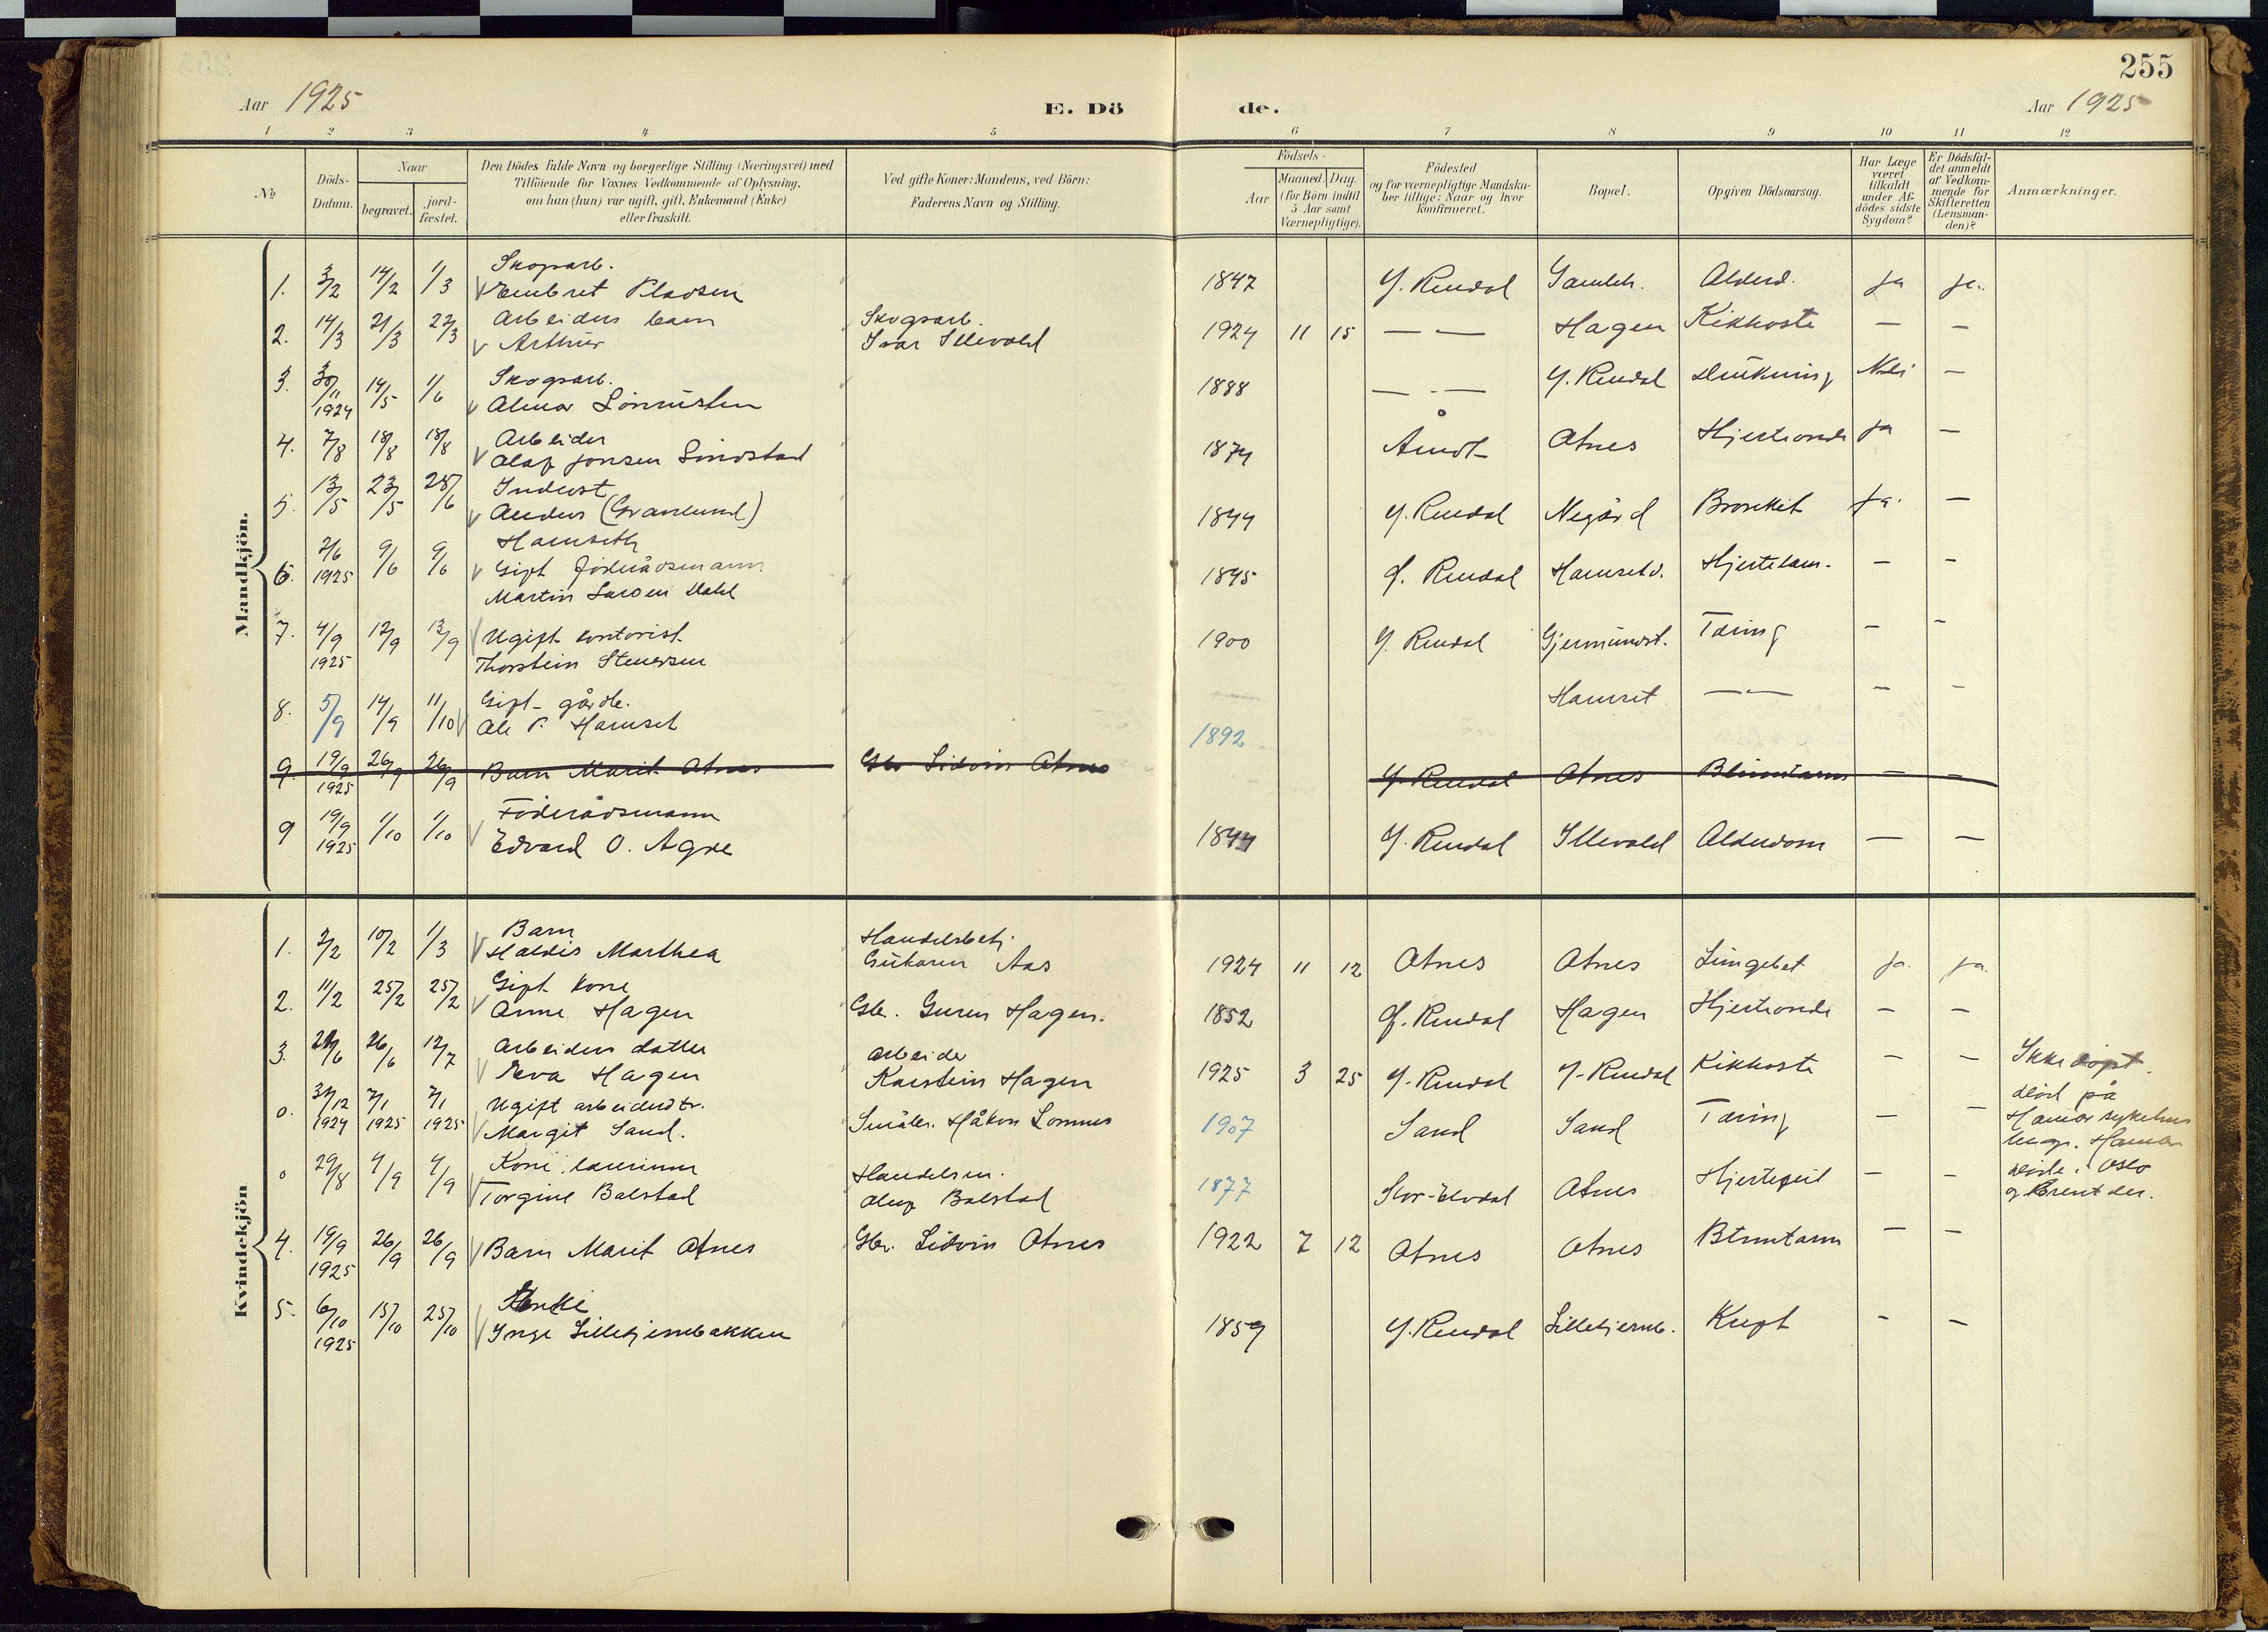 255
Aar 1925
E. Dö
de.
Aar 1925
1 2 3 4 5 6 7 8 9 10 11 12
No
Döds-Datum.
Naar
begravet.
jord-fæstet.
Den Dödes fulde Navn og borgerlige Stilling (Næringsvei) med
Tilföiende for Voxnes Vedkommende af Oplysning,
om han (hun) var ugift, gift, Enkemand (Enke)
eller fraskilt.
Ved gifte Koner: Mandens, ved Börn:
Faderens Navn og Stilling.
Födsels-
Aar
Maaned. Dag.
(for Börn indtil
5 Aar samt
Værnepligtige).
Födested
og for værnepligtige Mandska-
ber tillige: Naar og hvor
konfirmeret.
Bopæl.
Opgiven Dödsaarsag.
Har Læge
været
tilkaldt
under Af-
dödes sidste
Sygdom?
Er Dödsfal-
det anmeldt
af Vedkom-
mende for
Skifteretten
(Lensman-
den)?
Anmærkninger.
Mandkjön.
1. 3/2 14/2 1/3 Skogsarb.
Embret Pladsen 1847 Y. Rendal Alderd. ja ja.
2. 14/3 21/3 22/3 Arbeiders barn Skogsarb.
Arthur Ivar Illevold 1924 11 15 — — Hagen Kikhoste — —
3. 30/11 1924 14/5 1/6 Skogsarb.
Almar 1888 — — Y. Rendal Drukning Nei —
4. 7/8 18/8 18/8 Arbeider
Olaf Jonsen 1874 Åmot Atnes Hjerteonde ja —
5. 13/5 23/5 28/6 Inderst
Anders (Granlund) 1844 Y. Rendal Negård Bronkit ja. —
6. 2/6 1925 9/6 9/6 Hamseth
Gift föderådsmann
Martin Larsen Dahl 1845 Y. Rendal Hamseth. Hjertelam. — —
7. 4/9 1925 12/9 13/9 Ugift kontorist
Thorstein Stenersen 1900 Y. Rendal Gjermundst. Tæring — —
8. 5/9 14/9 11/10 Gift gårdb.
Ole P. Hamset 1892 Hamset — — — —
9. 19/9 1925 26/9 26/9 Barn Marit Atnes Gbr Sidvin Atnes Y. Rendal Atnes Blindtarm — —
9 19/9 1925 1/10 1/10 Föderådsmann
Edvard O. Agre 1844 Y. Rendal Illevold Alderdom — —
Kvindekjön
1. 2/2 10/2 1/3 Barn Handelsbetj.
Haldis Marthea Aas 1924 11 12 Atnes Atnes Lungebet ja. ja.
2. 11/2 25/2 25/2 Gift kone
Anne Hagen Gbr. Hagen. 1852 Y. Rendal Hagen Hjerteonde — —
3. 21/6 26/6 12/7 Arbeiders datter arbeider
Eva Hagen Karstein Hagen 1925 3 25 Y. Rendal Y. Rendal Kikhoste — — Ikke döpt.
0. 31/12 1924 7/1 1925 7/1 1925 Ugift arbeiderdtr.
Margit Sand. Håkon Lomnes 1907 Sand Sand Tæring — — död på
Hamar sykehus
begr. Hamar
0 29/8 4/9 4/9 Kone Handelsm.
Torgine Bolstad Oluf Bolstad 1877 Stor-Elvdal Atnes Hjertefeil — — døde i Oslo
og brent der.
4. 19/9 1925 26/9 26/9 Barn Marit Atnes Gbr. Sidvin Atnes 1922 7 12 Atnes Atnes Blindtarm — —
5. 6/10 1925 15/10 25/10 Enke
Inge Lillebjernbakken 1859 Y. Rendal Lillebjernb. Kreft — —